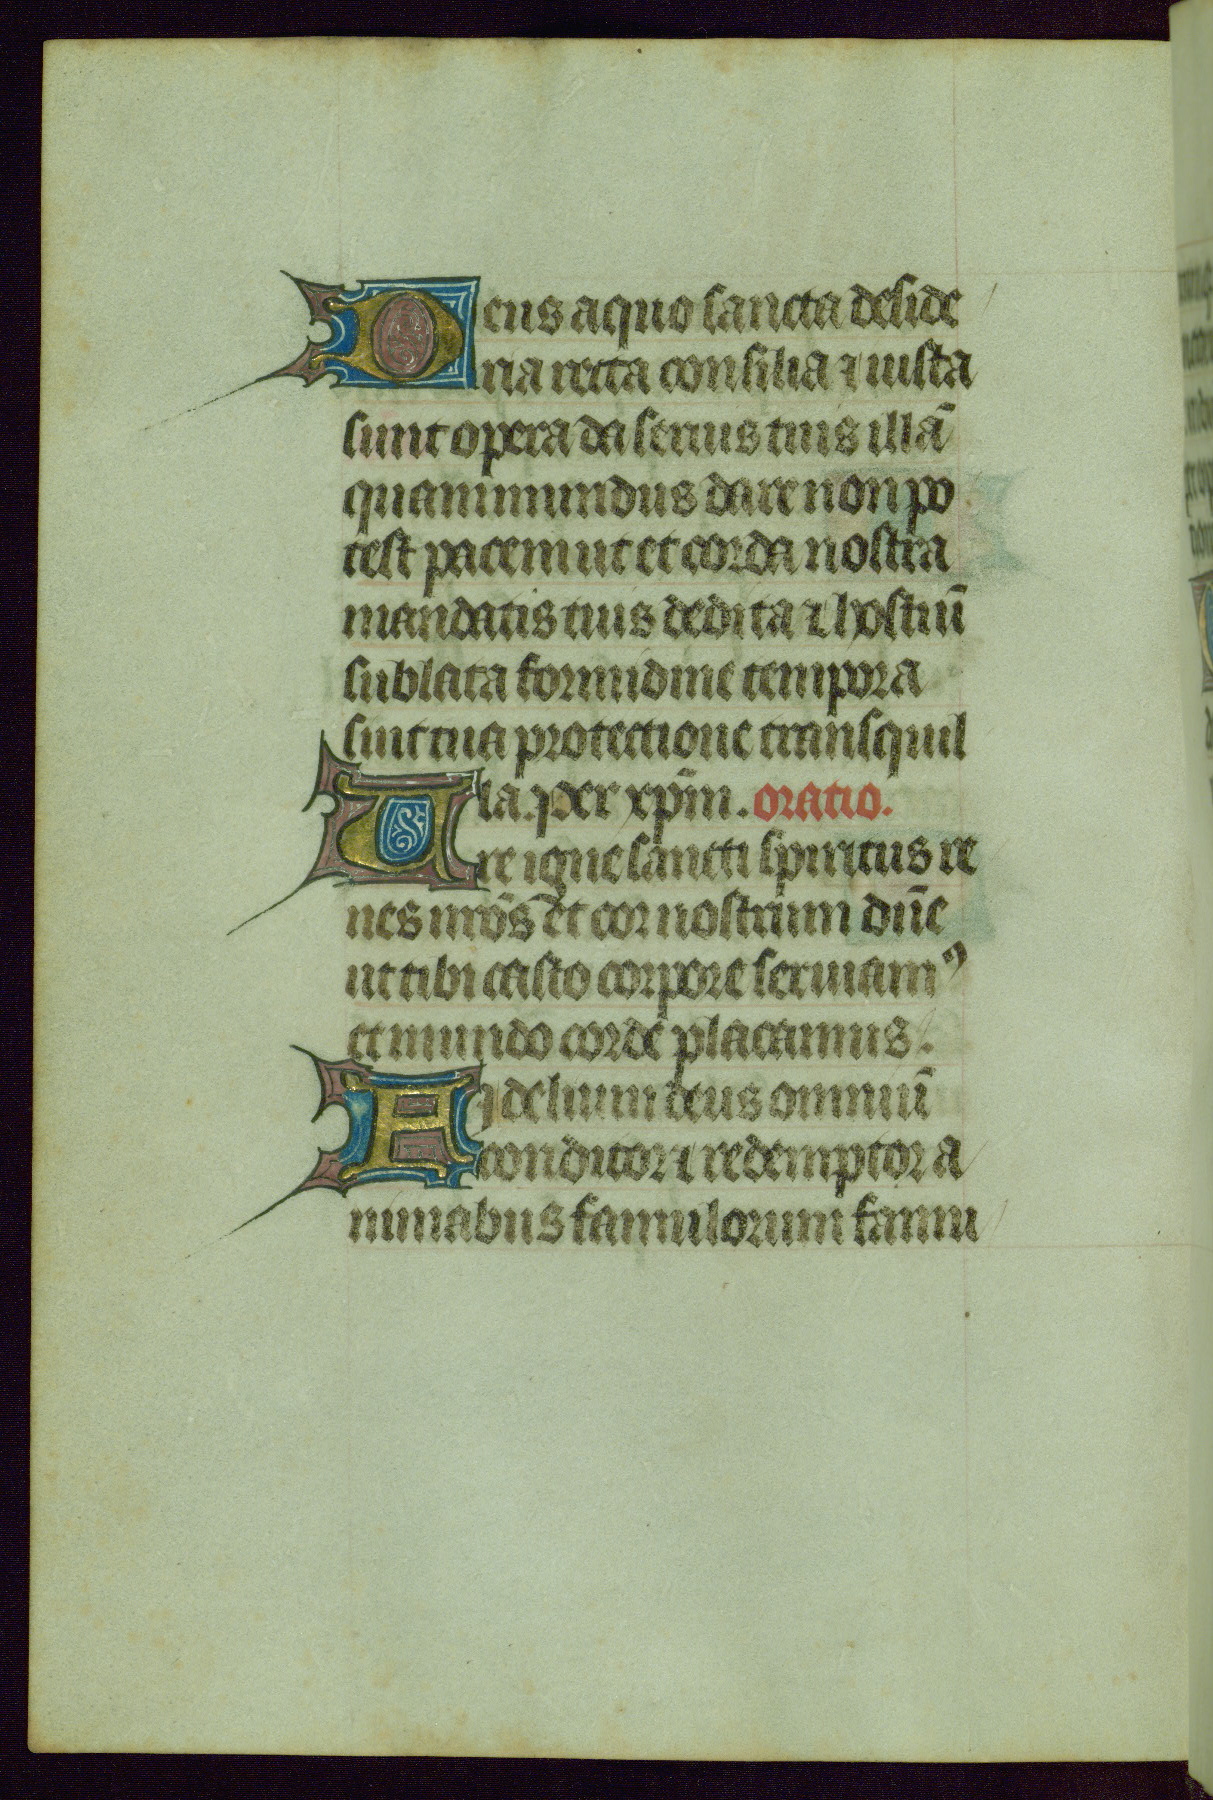 Deus a quo sancta deside
ria recta consilia ⁊ iusta
sunt opera da seruis tuis illā
quam mundus dare non po
test pacem ut et corda nostra
mandatis tuis dedita ⁊ hostiū
sublata formidine tempora
sint tua protectione transquil
la. per xp̄m. oratio.
Ure igne sancti spiritus re
nes nr̄os et cor nostrum dn̄e
ut tibi casto corpore seruiamꝰ
et mundo corde placeamus.
Fidelium deus omniū
conditor ⁊ redemptor a
nimabus famulorum famu